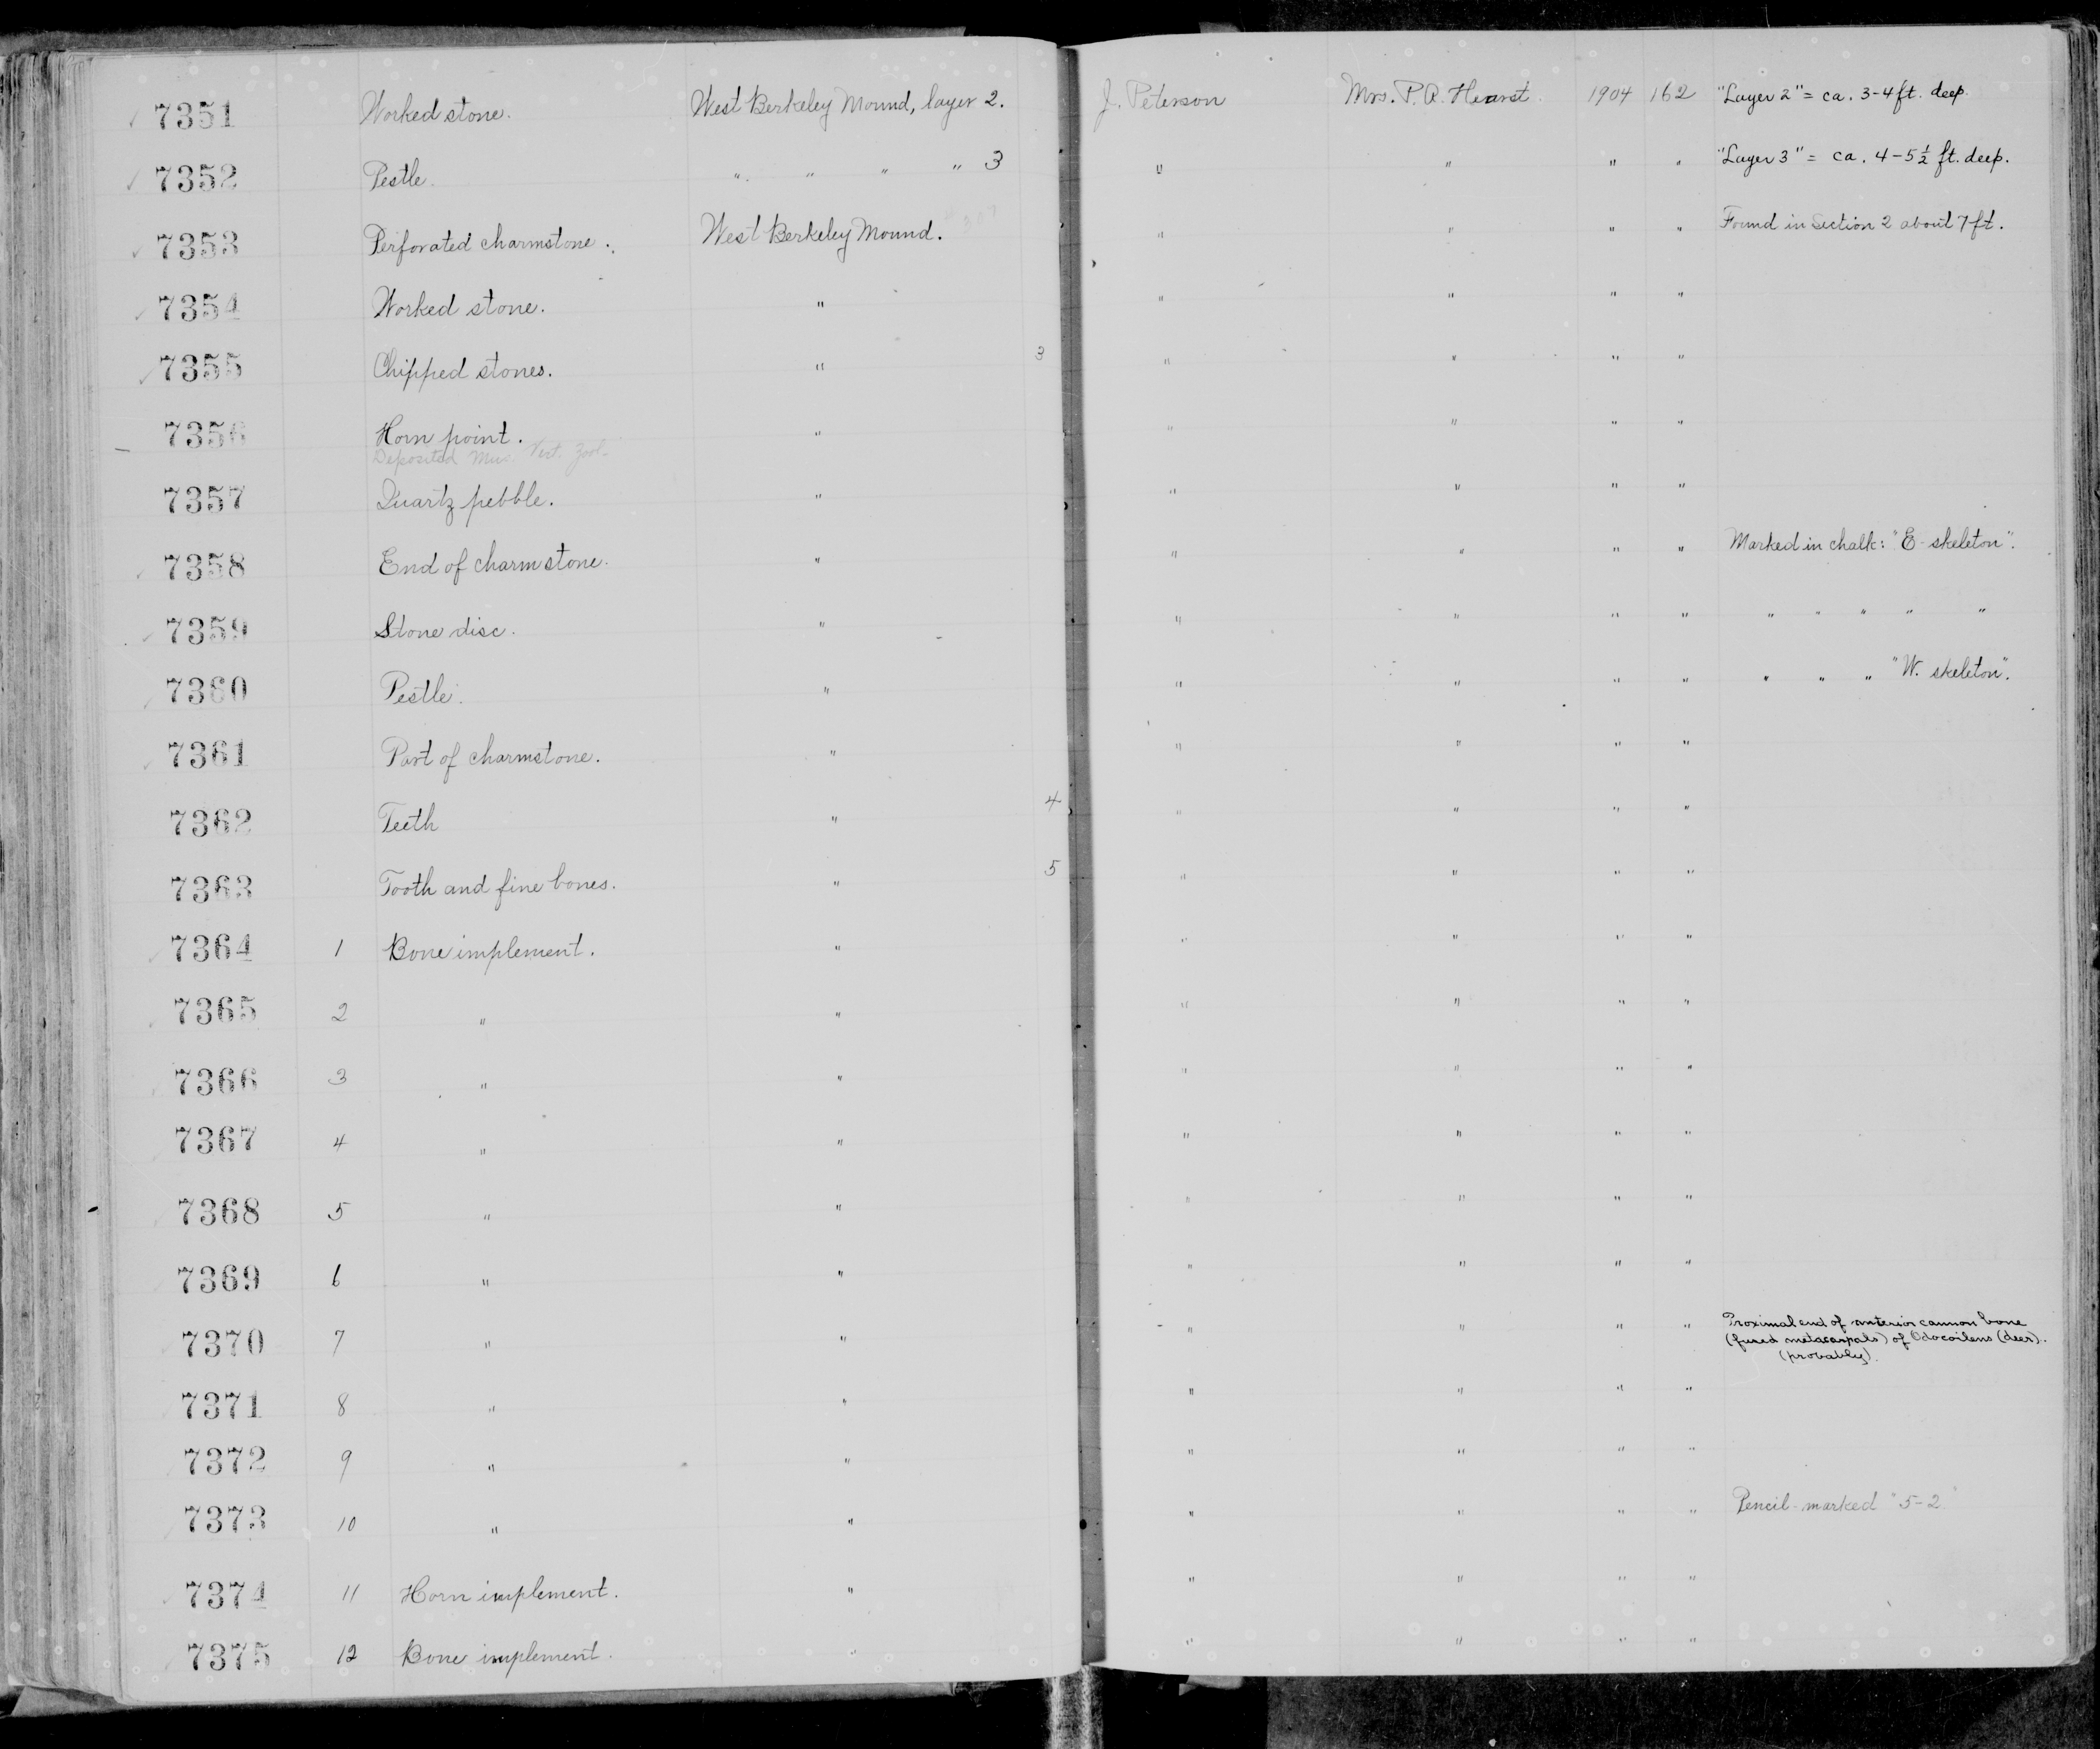 7351 Worked stone. West Berkeley Mound, layer 2. J. Peterson Mrs. P. A. Hearst. 1904 162 "Layer 2" = ca. 3-4 ft. deep.
7352 Pestle. " " " " 3 " " " " "Layer 3" = ca. 4-5½ ft. deep.
7353 Perforated charmstone. West Berkeley Mound. " " " " Found in Section 2 about 7 ft.
7354 Worked stone. " " " " "
7355 Chipped stones. " 3 " " " "
7356 Horn point. " " " " "
Deposited Mus. Vert. Zool.
7357 Quartz pebble. " " " " "
7358 End of charmstone. " " " " " Marked in chalk: "E. skeleton".
7359 Stone disc. " " " " " " " " " "
7360 Pestle. " " " " " " " " "W. skeleton".
7361 Part of charmstone. " " " " "
7362 Teeth " 4 " " " "
7363 Tooth and fine bones. " 5 " " " "
7364 1 Bone implement. " " " " "
7365 2 " " " " " "
7366 3 " " " " " "
7367 4 " " " " " "
7368 5 " " " " " "
7369 6 " " " " " "
7370 7 " " " " " " Proximal end of anterior cannon bone
(fused metacarpals) of Odocoileus (deer).
(probably).
7371 8 " " " " " "
7372 9 " " " " " "
7373 10 " " " " " " Pencil-marked "5-2"
7374 11 Horn implement. " " " " "
7375 12 Bone implement. " " " " "